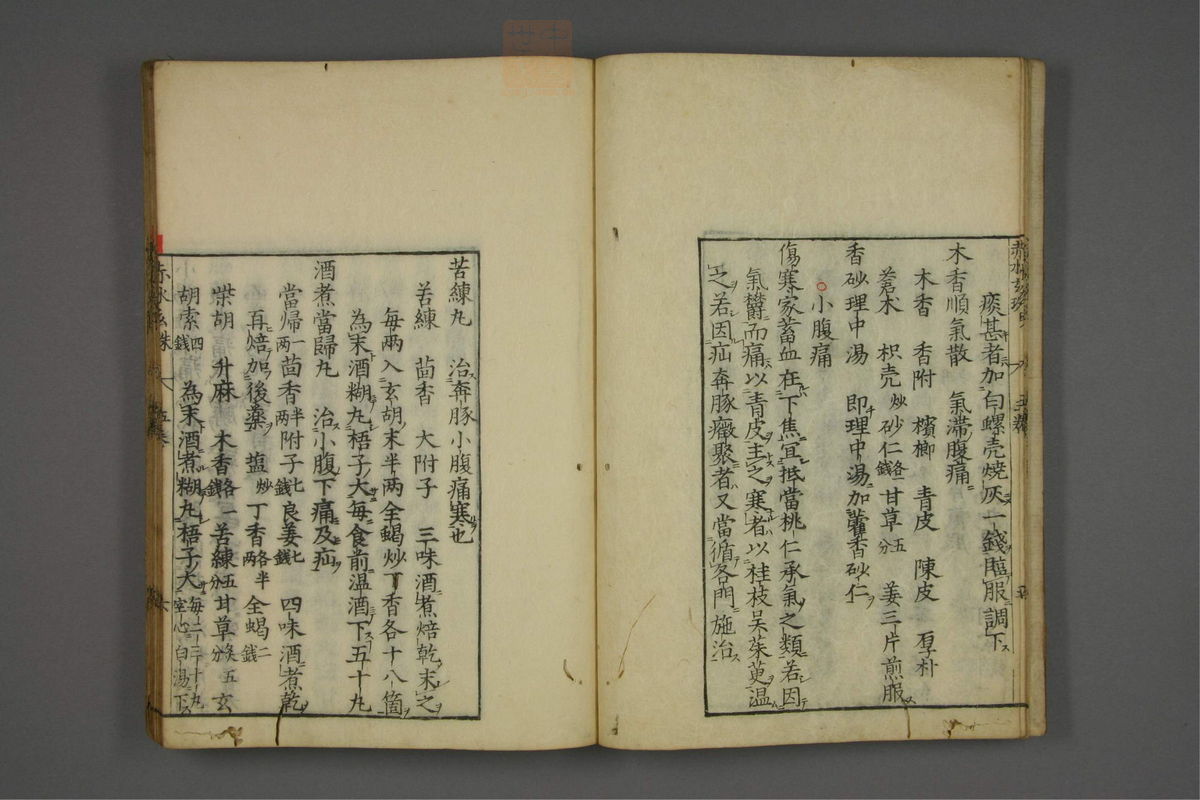 痰甚者加白螺壳燒灰一錢臨服調下
木香順氣散　氣滯腹痛
木香　香附　檳榔　青皮　陳皮　厚朴
蒼木　枳壳炒　砂仁各錢　甘草五分　姜三片煎服
香砂理中湯　即理中湯加藿香砂仁
小腹痛
傷寒家蓄血在下焦宜抵當桃仁承氣之類若因
氣欝而痛以青皮主之寒者以桂枝吴茱萸温
之若因疝奔豚癥聚者又當循各門施治
苦練丸　治奔豚小腹痛寒也
苦練　茴香　大附子　三味酒煮焙乾末之
每兩入玄胡末半兩全蝎炒丁香各十八箇
為末酒糊丸梧子大每食前温酒下五十丸
酒煮當歸丸　治小腹下痛及疝
當帰一兩茴香半兩附子七錢良姜七錢　四味酒煮乾
再焙加後藥　塩炒　丁香各半兩　全蝎二錢
柴胡　升麻　木香各一錢苦練五分甘草炙五分玄
胡索四錢　為末酒煮糊丸梧子大每二三十丸空心白湯下